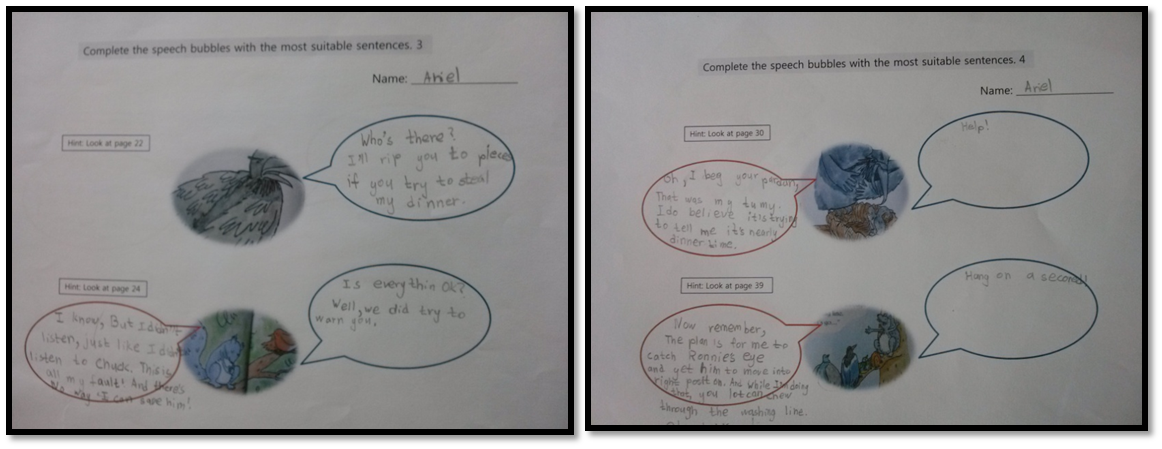 Complete the speech bubbles with the most suitable sentences. 3
Name: Ariel
Hint: Look at page 22
Who's there?
I'll rip you to pieces
if you try to steal
my dinner.
Hint: Look at page 24
I know, But I didn't
listen, just like I didn't
listen to Chuck. This is
all my fault! And there's
No way I can save him!
Is everythin Ok?
Well, we did try to
warn you.
Complete the speech bubbles with the most suitable sentences. 4
Name: Ariel
Hint: Look at page 30
Oh, I beg your pardon,
That was my tumy.
I do believe it's trying
to tell me it's nearly
dinner time.
Help!
Hint: Look at page 39
Now remember,
The plan is for me to
catch Ronnies eye
and get him to move into
right position. And while I'm doing
that, you lot can chew
through the washing line.
Hang on a second!